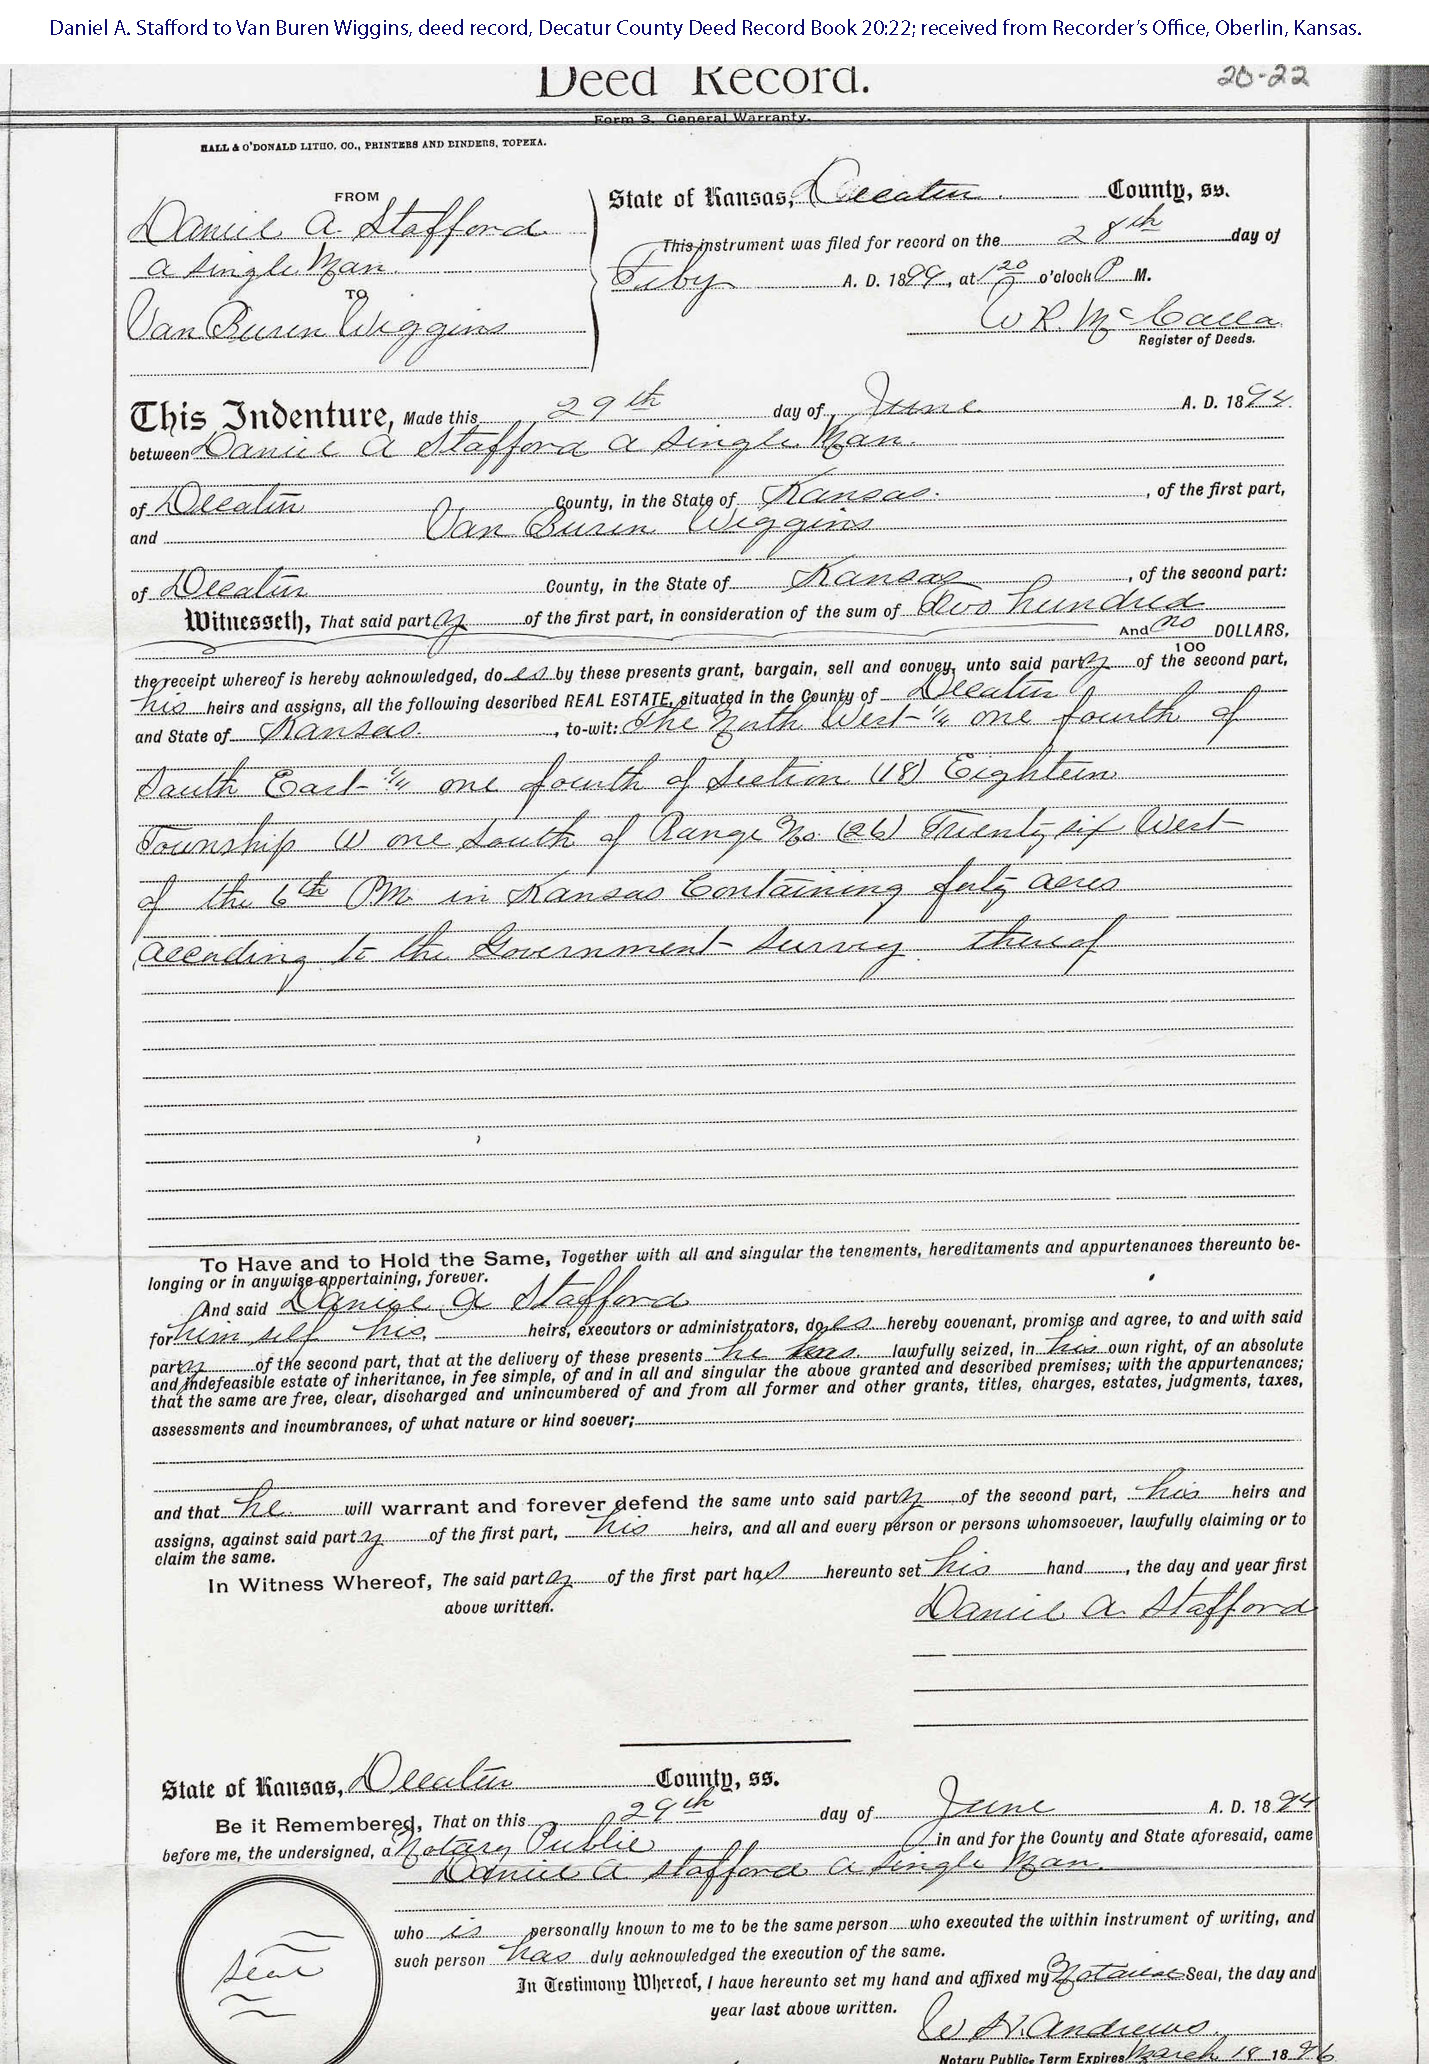 Daniel A. Stafford to Van Buren Wiggins, deed record, Decatur County Deed Record Book 20:22; received from Recorder's Office, Oberlin, Kansas.
Deed Record.
20-22
Form 3. General Warranty.
HALL & O'DONALD LITHO. CO., PRINTERS AND BINDERS, TOPEKA.
FROM
Daniel A. Stafford
a single Man.
TO
Van Buren Wiggins
State of Kansas, Decatur County, ss.
This instrument was filed for record on the 28th day of
Feby A. D. 1899, at 1 20 o'clock P M.
W R. McCalla
Register of Deeds.
This Indenture, Made this 29th day of June A. D. 1894.
between Daniel A Stafford a single Man.
of Decatur County, in the State of Kansas. , of the first part,
and Van Buren Wiggins
of Decatur County, in the State of Kansas , of the second part:
Witnesseth, That said party of the first part, in consideration of the sum of Two hundred
And no/100 DOLLARS,
the receipt whereof is hereby acknowledged, does by these presents grant, bargain, sell and convey, unto said party of the second part,
his heirs and assigns, all the following described REAL ESTATE, situated in the County of Decatur
and State of Kansas. , to-wit: The North West 1/4 one fourth of
South East 1/4 one fourth of Section (18) Eighteen
Township (1) one South of Range No. (26) Twenty six West
of the 6th PM. in Kansas Containing forty acres
according to the Government Survey. thereof
To Have and to Hold the Same, Together with all and singular the tenements, hereditaments and appurtenances thereunto be-
longing or in anywise appertaining, forever.
And said Daniel A Stafford
for him self his, heirs, executors or administrators, does hereby covenant, promise and agree, to and with said
party of the second part, that at the delivery of these presents he has lawfully seized, in his own right, of an absolute
and indefeasible estate of inheritance, in fee simple, of and in all and singular the above granted and described premises; with the appurtenances;
that the same are free, clear, discharged and unincumbered of and from all former and other grants, titles, charges, estates, judgments, taxes,
assessments and incumbrances, of what nature or kind soever;
and that he will warrant and forever defend the same unto said party of the second part, his heirs and
assigns, against said party of the first part, his heirs, and all and every person or persons whomsoever, lawfully claiming or to
claim the same.
In Witness Whereof, The said party of the first part has hereunto set his hand , the day and year first
above written.
Daniel A. Stafford
State of Kansas, Decatur County, ss.
Be it Remembered, That on this 29th day of June A. D. 1894
before me, the undersigned, a Notary Public in and for the County and State aforesaid, came
Daniel A Stafford a single Man.
who is personally known to me to be the same person who executed the within instrument of writing, and
such person has duly acknowledged the execution of the same.
In Testimony Whereof, I have hereunto set my hand and affixed my Notarial Seal, the day and
year last above written.
Seal
W. N. Andrews.
Notary Public. Term Expires March 18 1896